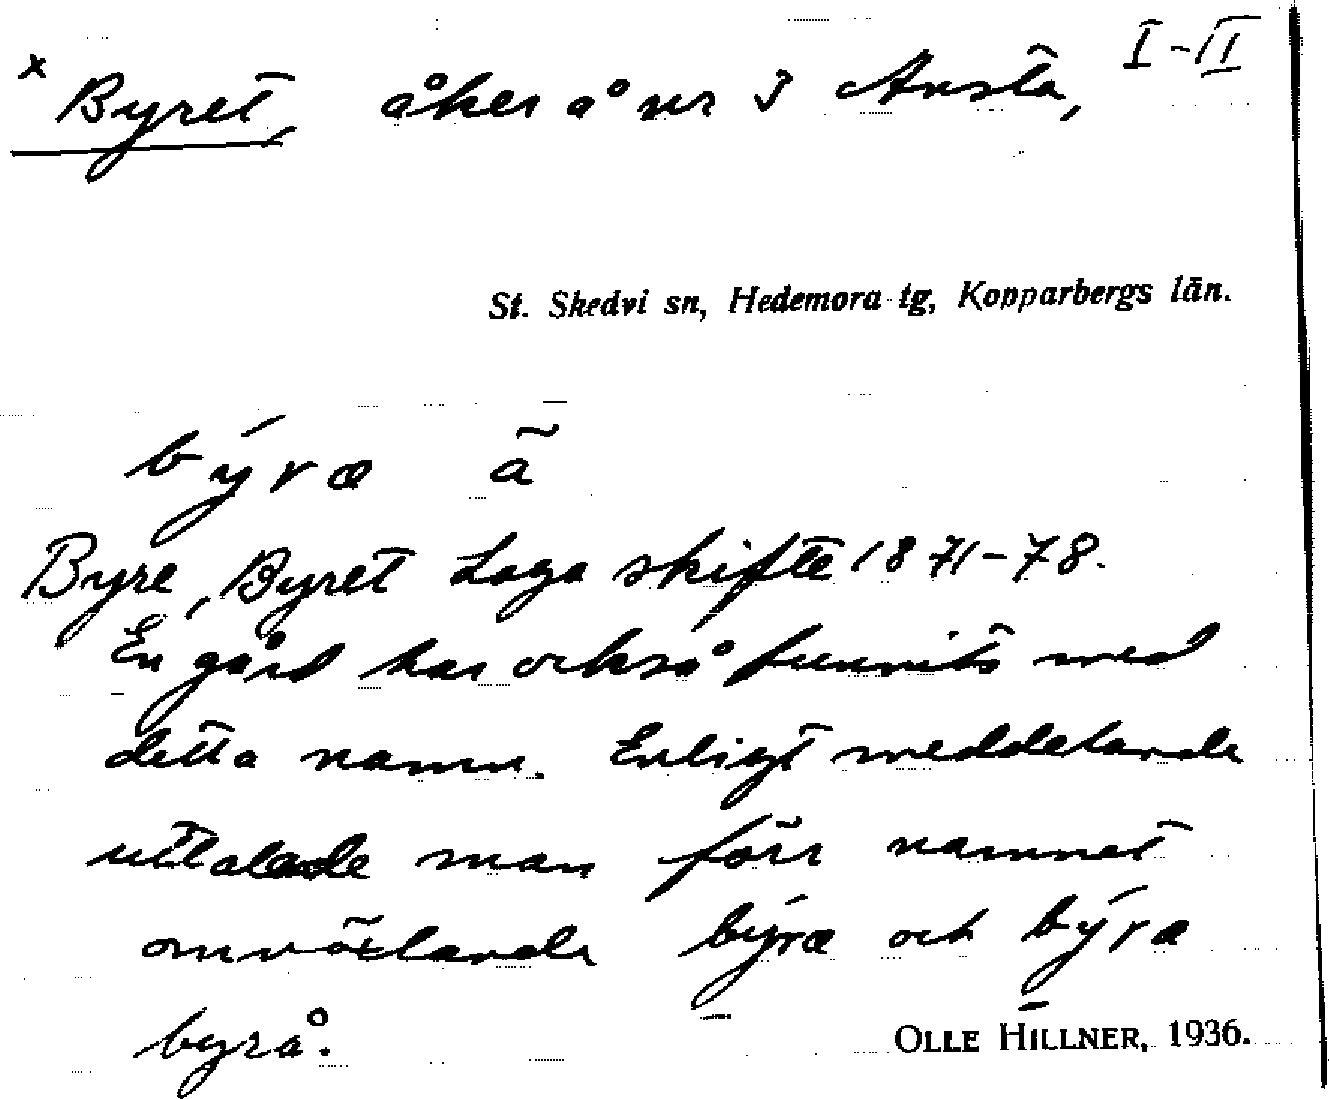 x Byret, åker å nr 3 Ansta, I-II
St. Skedvi sn, Hedemora tg, Kopparbergs län.
býræ ã
Byre, Byret Laga skifte 1871-78.
En gård har också funnits med
detta namn. Enligt meddelande
uttalade man förr namnet
omväxlande býræ och býra
byrå.
OLLE HILLNER, 1936.